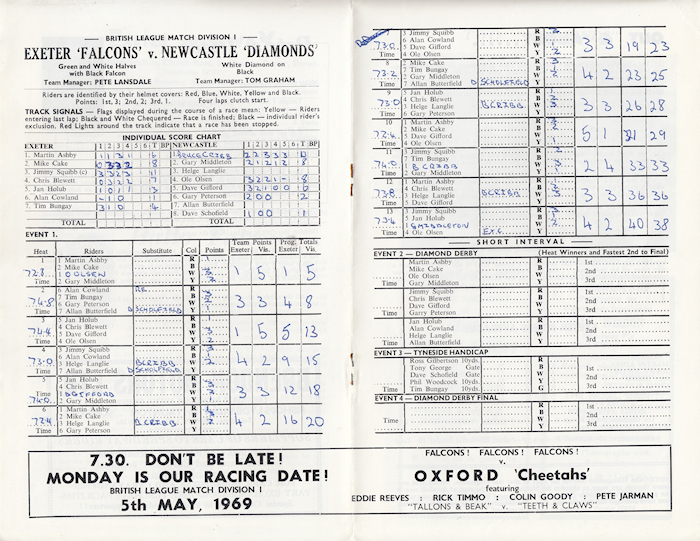 BRITISH LEAGUE MATCH DIVISION 1
EXETER 'FALCONS' v. NEWCASTLE 'DIAMONDS'
Green and White Halves with Black Falcon
White Diamond on Black
Team Manager: PETE LANSDALE
Team Manager: TOM GRAHAM
Riders are identified by their helmet covers: Red, Blue, White, Yellow and Black.
Points: 1st, 3; 2nd, 2; 3rd, 1. Four laps clutch start.
TRACK SIGNALS – Flags displayed during the course of a race mean: Yellow — Riders
entering last lap; Black and White Chequered — Race is finished; Black — individual rider's
exclusion. Red Lights around the track indicate that a race has been stopped.
INDIVIDUAL SCORE CHART
EXETER 1 2 3 4 5 6 T BP NEWCASTLE 1 2 3 4 5 6 T BP
1 Martin Ashby
2 Mike Cake 2 Gary Middleton
3 Jimmy Squibb (c) 3 Helge Langlie
4 Chris Blewett 4 Ole Olsen
5 Jan Holub 5 Dave Gifford
6 Alan Cowland 6 Gary Peterson
7 Tim Bungay 7 Allan Butterfield
8 Dave Schofield
TOTAL TOTAL
EVENT 1.
Heat Riders Substitute Col Points Team Points Exeter Vis. Prog. Totals Exeter Vis.
1 1 Martin Ashby R
2 Mike Cake B
72.8 1 O OLSEN W 1 5 1 5
Time 2 Gary Middleton Y
2 6 Alan Cowland R
7 Tim Bungay B
74.8 6 Gary Peterson W 3 3 4 8
Time 7 Allan Butterfield D SCHOLEFIELD Y
3 5 Jan Holub R
4 Chris Blewett B
74.4 5 Dave Gifford W 1 5 5 13
Time 4 Ole Olsen Y
4 3 Jimmy Squibb R
6 Alan Cowland B
73.0 3 Helge Langlie B CRIBB W 4 2 9 15
Time 7 Allan Butterfield D SCHOLEFIELD Y
5 5 Jan Holub R
4 Chris Blewett B
W 3 3 12 18
Time 2 Gary Middleton Y
6 1 Martin Ashby R
2 Mike Cake B
3 Helge Langlie B CRIBB W 4 2 16 20
Time 6 Gary Peterson Y
3 Jimmy Squibb R
6 Alan Cowland B
73.0 5 Dave Gifford W 3 3 19 23
Time 4 Ole Olsen Y
8 2 Mike Cake R
7 Tim Bungay B
73.2 2 Gary Middleton W 4 2 23 25
Time 7 Allan Butterfield D SCHOLEFIELD Y
9 5 Jan Holub R
4 Chris Blewett B
73.0 3 Helge Langlie B CRIBB W 3 3 26 28
Time 6 Gary Peterson Y
10 1 Martin Ashby R
2 Mike Cake B
72.4 5 Dave Gifford W 5 1 29
Time 4 Ole Olsen Y
11 3 Jimmy Squibb R
7 Tim Bungay B
74.0 1 B CRIBB W 2 4 33 33
Time 2 Gary Middleton Y
12 1 Martin Ashby R
4 Chris Blewett B
73.8 3 Helge Langlie B CRIBB W 3 3 36 36
Time 5 Dave Gifford Y
13 3 Jimmy Squibb R
5 Jan Holub B
73.4 1 G MIDDLETON W 4 2 40 38
Time 4 Ole Olsen Y
SHORT INTERVAL
EVENT 2 – DIAMOND DERBY (Heat Winners and Fastest 2nd to Final)
Martin Ashby R
Mike Cake B 1st
Ole Olsen W 2nd
Time Gary Middleton Y 3rd
Jimmy Squibb R
Chris Blewett B 1st
Dave Gifford W 2nd
Time Garry Peterson Y 3rd
Jan Holub R
Alan Cowland B 1st
Helge Langlie W 2nd
Time Allan Butterfield Y 3rd
EVENT 3 — TYNESIDE HANDICAP
Ross Gilbertson 10yds. R
Tony George Gate B 1st
Dave Schofield Gate W 2nd
Phil Woodcock 10yds. Y 3rd
Time Tim Bungay 10yds. G
EVENT 4 — DIAMOND DERBY FINAL
R 1st
B 2nd
W 3rd
Time Y
7.30. DON'T BE LATE!
MONDAY IS OUR RACING DATE!
BRITISH LEAGUE MATCH DIVISION 1
5th MAY, 1969
FALCONS! FALCONS! FALCONS!
v.
OXFORD 'Cheetahs'
featuring
EDDIE REEVES : RICK TIMMO : COLIN GOODY : PETE JARMAN
"TALLONS & BEAK" v. "TEETH & CLAWS"